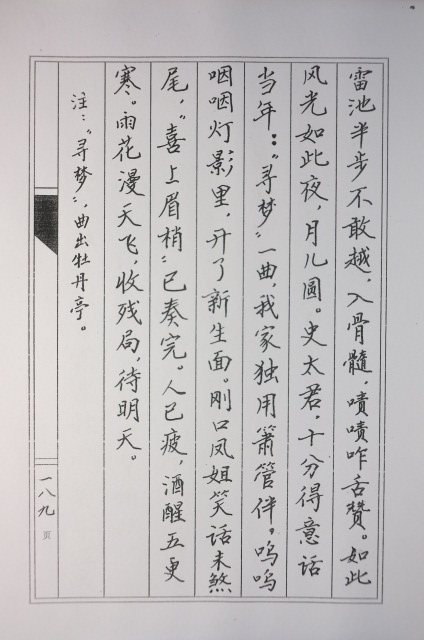 雷池半步不敢越，入骨髓，啧啧咋舌赞。如此
风光如此夜，月儿圆。史太君，十分得意话
当年：“寻梦”一曲，我家独用箫管伴。呜呜
咽咽灯影里，升了新生面。刚口凤姐笑话未煞
尾，“喜上眉梢”已奏完。人已疲，酒醒五更
寒。雨花漫天飞，收残局，待明天。
注：“寻梦”，曲出牡丹亭。
一八九页